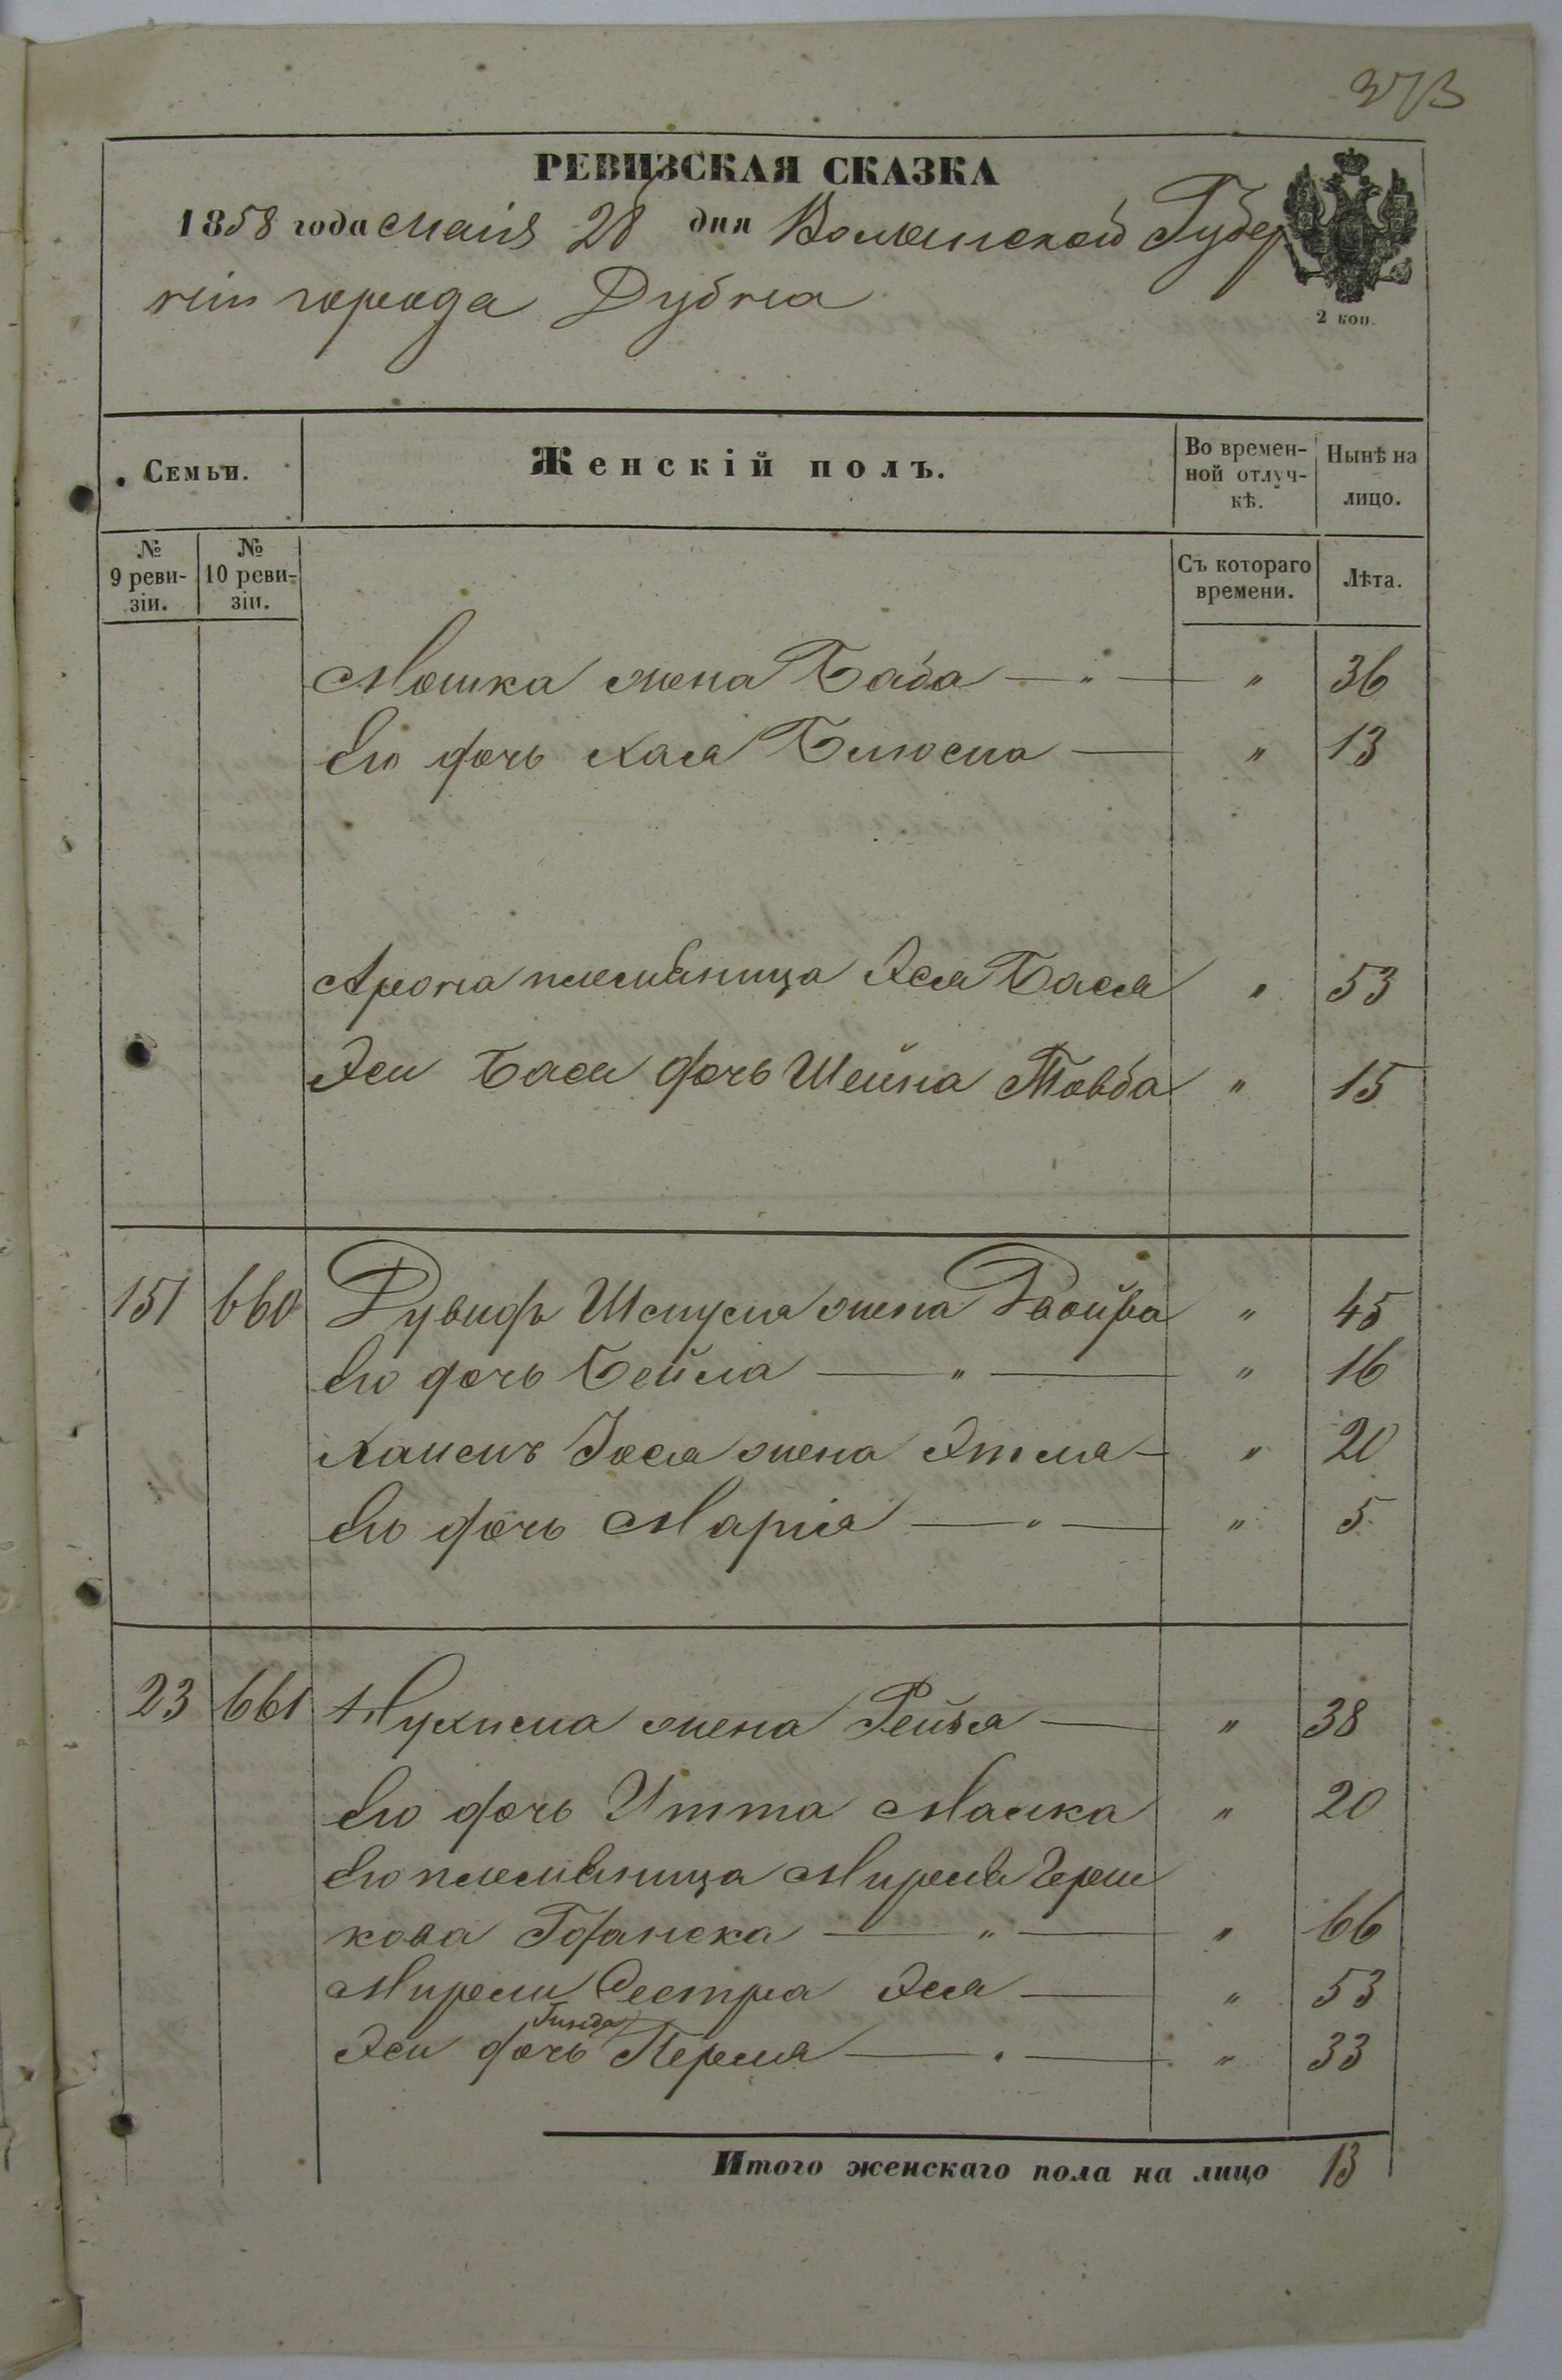 373
РЕВИЗСКАЯ СКАЗКА
1858 года Маія 28 дня Волынской Губер
ніи города Дубна
2 коп.
Семьи. Женскій полъ. Во времен- Нынѣ на
ной отлуч- лицо.
кѣ.
№ № Съ котораго Лѣта.
9 реви- 10 реви- времени.
зіи. зіи.
Мошка жена Баба — " — " 36
Его дочь Хая Блюма — " 13
Арона племѣница Эся Бася " 53
Эси Баси дочь Шейна Товба " 15
151 660 Рувинъ Шмуля жена Двойра " 45
Его дочь Бейла — " — " 16
Хаимъ Іося жена Этля — " 20
Его дочь Марія — " — " 5
23 661 Нухима жена Рейзя — " 38
Его дочь Итта Малка " 20
Его племѣница Мирля Герш
кова — " — " 66
Мирли Сестра Эся — " 53
Гинда
Эси дочь Перля — " — " 33
Итого женскаго пола на лицо 13